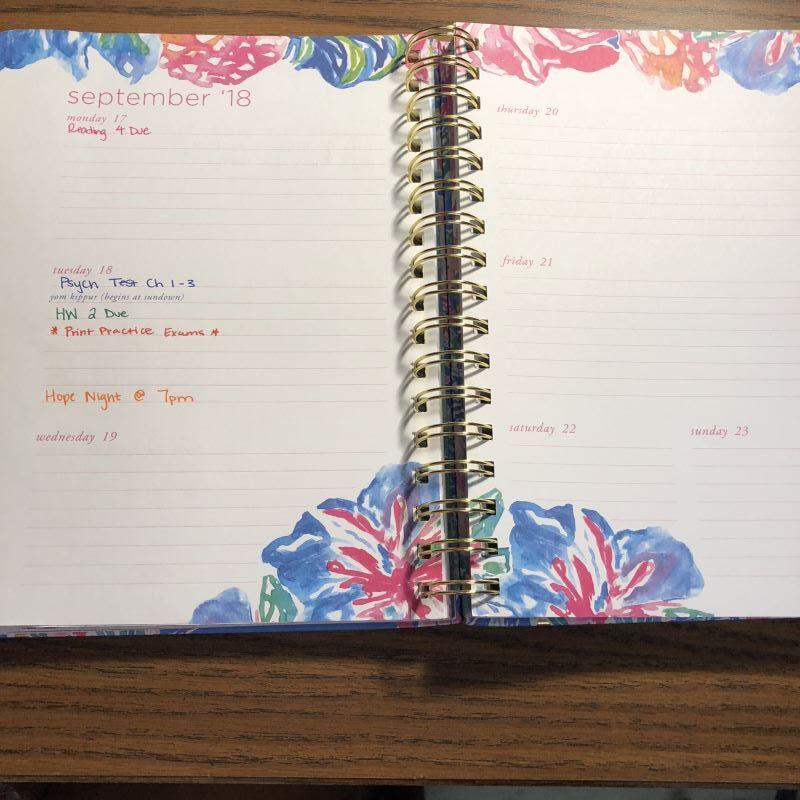 september '18
monday 17
Reading 4 Due
tuesday 18
Psych Test Ch 1-3
yom kippur (begins at sundown)
HW 2 Due
* Print Practice Exams *
Hope Night @ 7pm
wednesday 19
thursday 20
friday 21
saturday 22
sunday 23